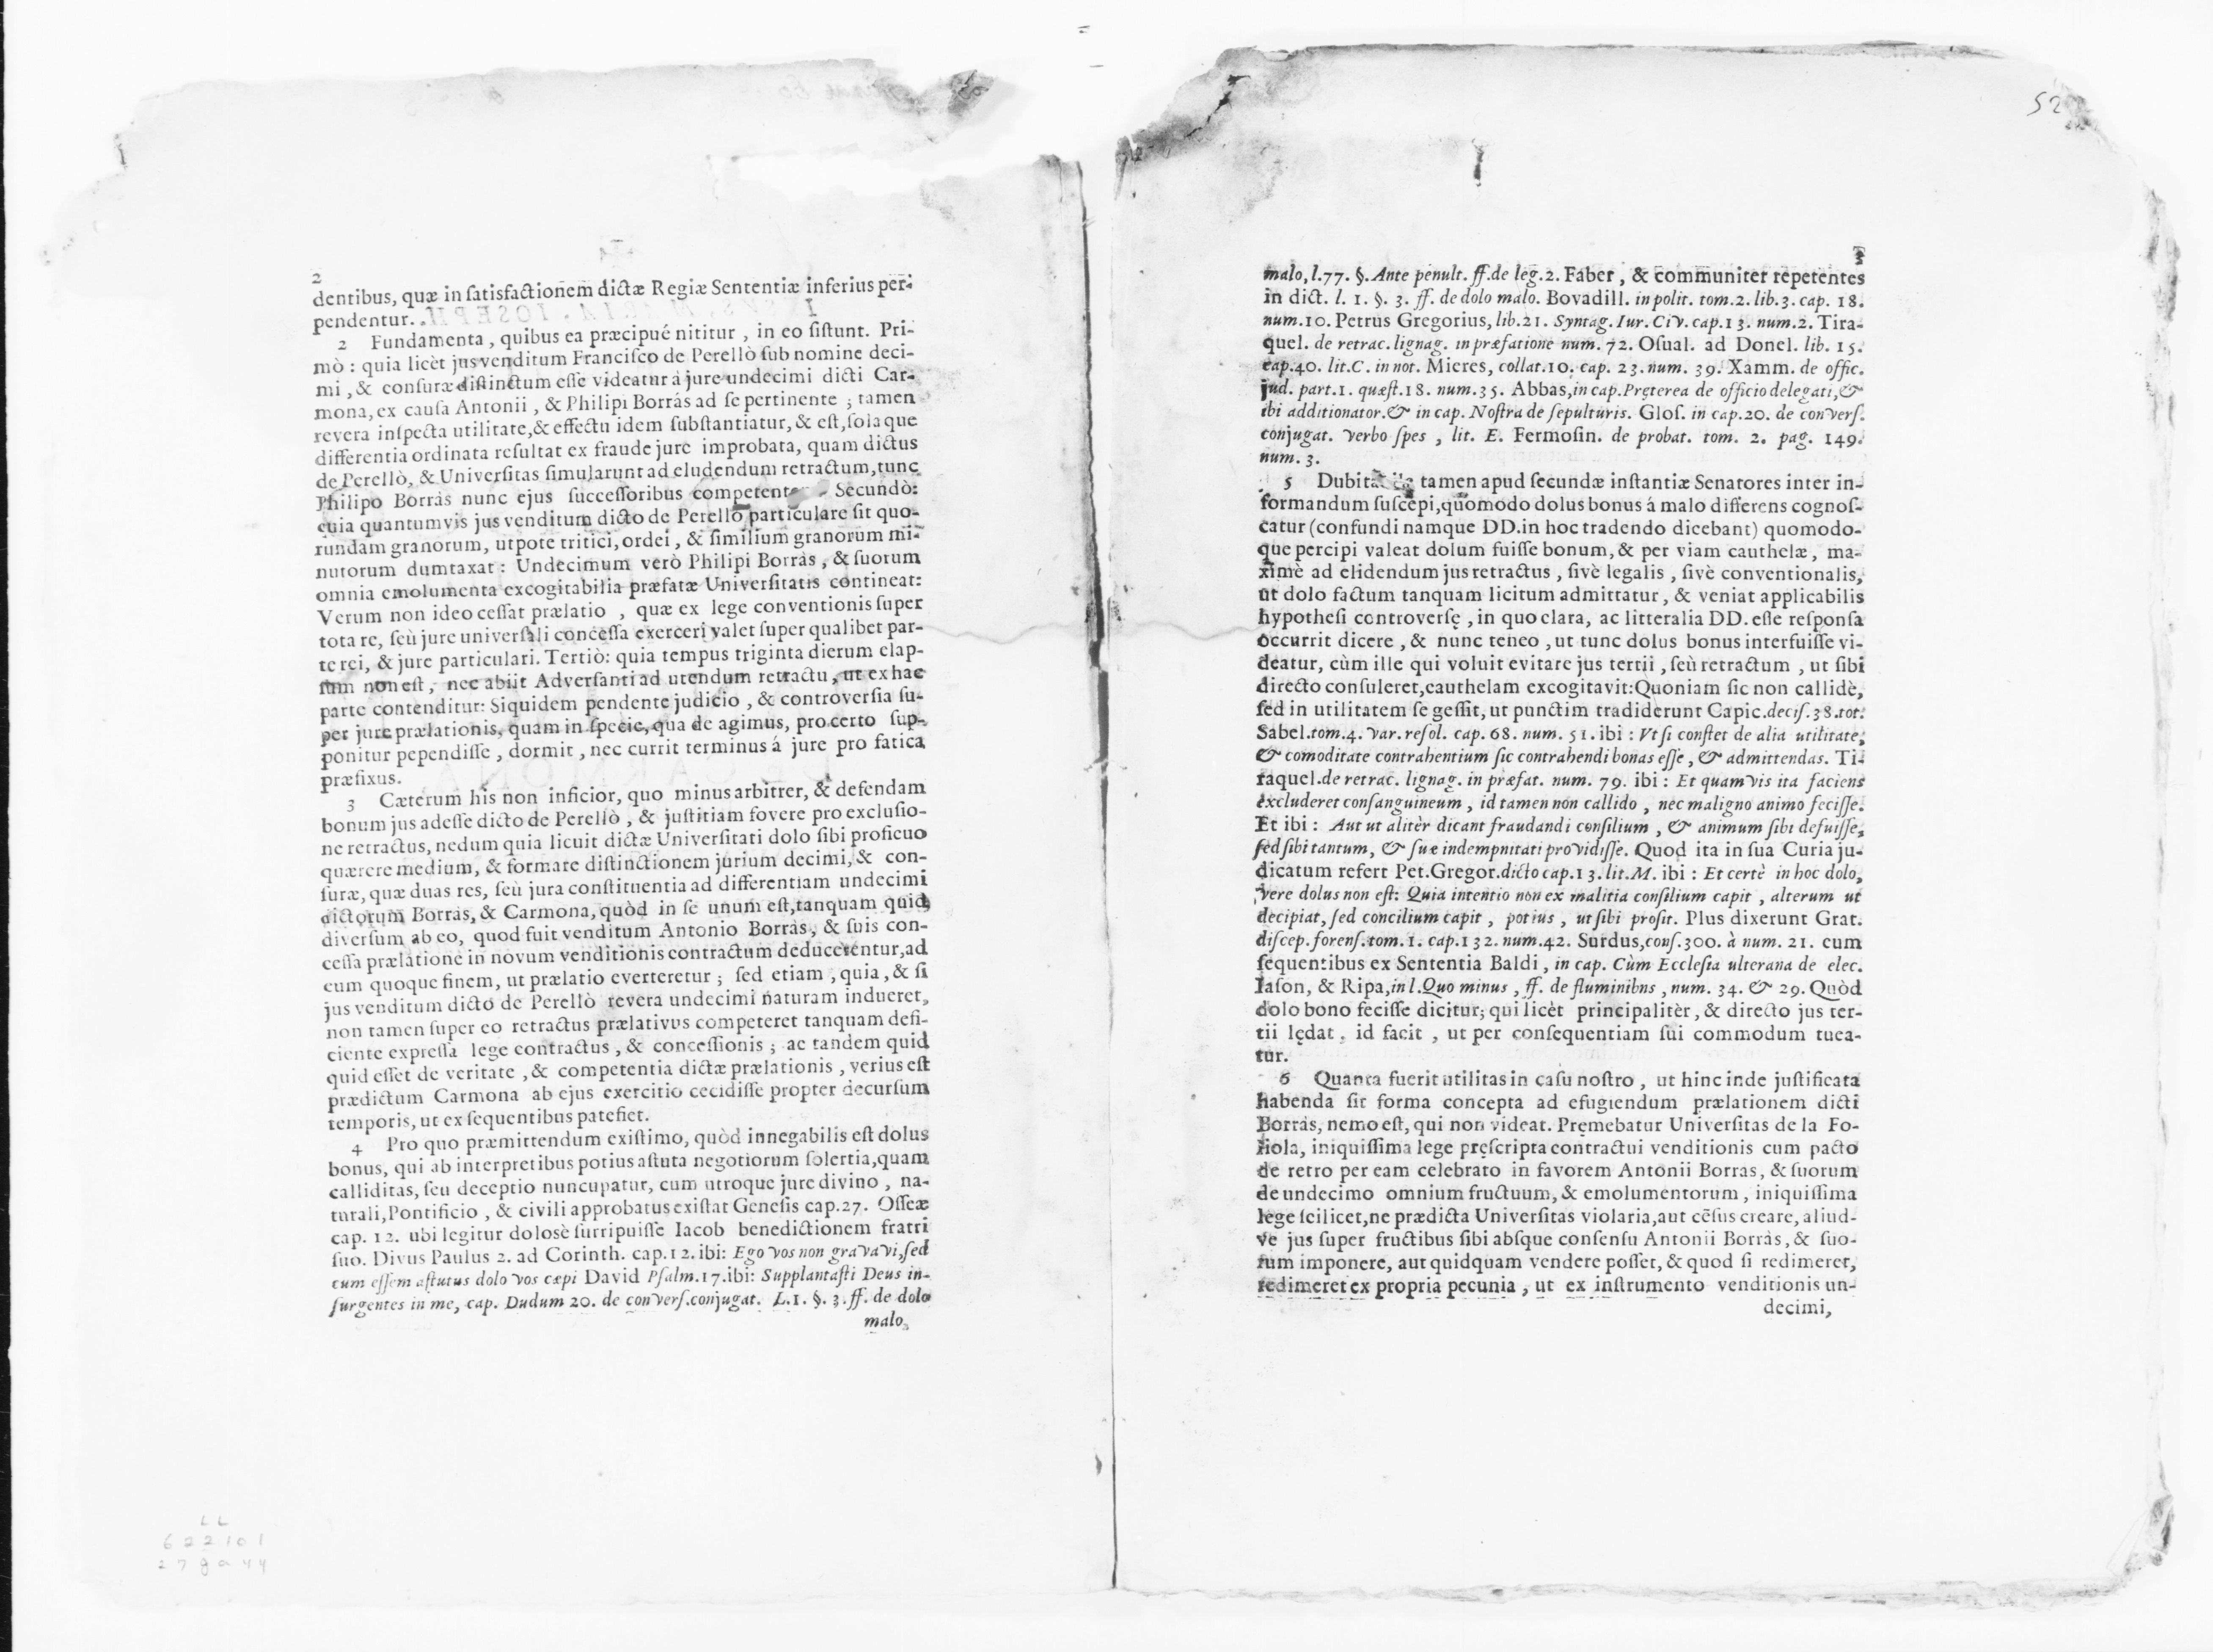 2
dentibus, quæ in ſatisfactionem dictæ Regiæ Sententiæ inferius per-
pendentur.
2 Fundamenta, quibus ea præcipué nititur, in eo ſiſtunt. Pri-
mò: quia licèt jus venditum Franciſco de Perellò ſub nomine deci-
mi, & conſuræ diſtinctum eſſe videatur á jure undecimi dicti Car-
mona, ex cauſa Antonii, & Philipi Borrás ad ſe pertinente; tamen
revera inſpecta utilitate, & effectu idem ſubſtantiatur, & eſt, ſola que
differentia ordinata reſultat ex fraude jure improbata, quam dictus
de Perellò, & Univerſitas ſimularunt ad eludendum retractum, tunc
Philipo Borràs nunc ejus ſucceſſoribus Secundò:
cuia quantumvis jus venditum dicto de Perellò particulare ſit quo-
rundam granorum, utpote tritici, ordei, & ſimilium granorum mi-
nutorum dumtaxat: Undecimum verò Philipi Borràs, & ſuorum
omnia emolumenta excogitabilia præfatæ Univerſitatis contineat:
Verum non ideo ceſſat prælatio, quæ ex lege conventionis ſuper
tota re, ſeù jure univerſali conceſſa exerceri valet ſuper qualibet par-
te rei, & jure particulari. Tertiò: quia tempus triginta dierum elap-
ſum non eſt, nec abiit Adverſanti ad utendum retractu, ut ex hac
parte contenditur: Siquidem pendente judicio, & controverſia ſu-
per jure prælationis, quam in ſpecie, qua de agimus, pro certo ſup-
ponitur pependiſſe, dormit, nec currit terminus á jure pro fatica
præfixus.
3 Cæterum his non inficior, quo minus arbitrer, & defendam
bonum jus adeſſe dicto de Perellò, & juſtitiam fovere pro excluſio-
ne retractus, nedum quia licuit dictæ Univerſitati dolo ſibi proficuo
quærere medium, & formare diſtinctionem jurium decimi, & con-
ſuræ, quæ duas res, ſeù jura conſtituentia ad differentiam undecimi
dictorum Borràs, & Carmona, quòd in ſe unum eſt, tanquam quid
diverſum ab eo, quod fuit venditum Antonio Borràs, & ſuis con-
ceſſa prælatione in novum venditionis contractum deducerentur, ad
eum quoque finem, ut prælatio everteretur; ſed etiam, quia, & ſi
jus venditum dicto de Perellò revera undecimi naturam indueret,
non tamen ſuper eo retractus prælativus competeret tanquam defi-
ciente expreſſa lege contractus, & conceſſionis; ac tandem quid
quid eſſet de veritate, & competentia dictæ prælationis, verius eſt
prædictum Carmona ab ejus exercitio cecidiſſe propter decurſum
temporis, ut ex ſequentibus patefiet.
4 Pro quo præmittendum exiſtimo, quòd innegabilis eſt dolus
bonus, qui ab interpretibus potius aſtuta negotiorum ſolertia, quam
calliditas, ſeu deceptio nuncupatur, cum utroque jure divino, na-
turali, Pontificio, & civili approbatus exiſtat Geneſis cap. 27. Oſſeæ
cap. 12. ubi legitur dolosè ſurripuiſſe Iacob benedictionem fratri
ſuo. Divus Paulus 2. ad Corinth. cap. 12. ibi: Ego vos non gravavi, ſed
cum eſſem aſtutus dolo vos cæpi David Pſalm. 17. ibi: Supplantaſti Deus in-
ſurgentes in me, cap. Dudum 20. de converſ. conjugat. L. 1. §. 3. ff. de dolo
malo,
52
3
malo, l. 77. §. Ante penult. ff. de leg. 2. Faber, & communiter repetentes
in dict. l. 1. §. 3. ff. de dolo malo. Bovadill. in polit. tom. 2. lib. 3. cap. 18.
num. 10. Petrus Gregorius, lib. 21. Syntag. Iur. Civ. cap. 13. num. 2. Tira-
quel. de retrac. lignag. in præfatione num. 72. Oſual. ad Donel. lib. 15.
cap. 40. lit. C. in not. Mieres, collat. 10. cap. 23. num. 39. Xamm. de offic.
jud. part. 1. quæſt. 18. num. 35. Abbas, in cap. Pręterea de officio delegati, &
ibi additionator. & in cap. Noſtra de ſepulturis. Gloſ. in cap. 20. de converſ.
conjugat. verbo ſpes, lit. E. Fermoſin. de probat. tom. 2. pag. 149.
num. 3.
5 tamen apud ſecundæ inſtantiæ Senatores inter in-
formandum ſuſcepi, quomodo dolus bonus á malo differens cognoſ-
catur (confundi namque DD. in hoc tradendo dicebant) quomodo-
que percipi valeat dolum fuiſſe bonum, & per viam cauthelæ, ma-
ximè ad elidendum jus retractus, ſivè legalis, ſivè conventionalis,
ut dolo factum tanquam licitum admittatur, & veniat applicabilis
hypotheſi controverſę, in quo clara, ac litteralia DD. eſſe reſponſa
occurrit dicere, & nunc teneo, ut tunc dolus bonus interfuiſſe vi-
deatur, cùm ille qui voluit evitare jus tertii, ſeù retractum, ut ſibi
directo conſuleret, cauthelam excogitavit: Quoniam ſic non callidè,
ſed in utilitatem ſe geſſit, ut punctim tradiderunt Capic. deciſ. 38. tot.
Sabel. tom. 4. var. reſol. cap. 68. num. 51. ibi: Vt ſi conſtet de alia utilitate,
& comoditate contrahentium ſic contrahendi bonas eſſe, & admittendas. Ti-
raquel. de retrac. lignag. in præfat. num. 79. ibi: Et quamvis ita faciens
excluderet conſanguineum, id tamen non callido, nec maligno animo feciſſe.
Et ibi: Aut ut alitèr dicant fraudandi conſilium, & animum ſibi defuiſſe,
ſed ſibi tantum, & ſuæ indempnitati providiſſe. Quod ita in ſua Curia ju-
dicatum refert Pet. Gregor. dicto cap. 13. lit. M. ibi: Et certè in hoc dolo,
vere dolus non eſt: Quia intentio non ex malitia conſilium capit, alterum ut
decipiat, ſed concilium capit, potius, ut ſibi proſit. Plus dixerunt Grat.
diſcep. forenſ. tom. 1. cap. 132. num. 42. Surdus, conſ. 300. à num. 21. cum
ſequentibus ex Sententia Baldi, in cap. Cùm Eccleſia ulterana de elec.
Iaſon, & Ripa, in l. Quo minus, ff. de fluminibns, num. 34. & 29. Quòd
dolo bono feciſſe dicitur; qui licèt principalitèr, & directo jus ter-
tii lędat, id facit, ut per conſequentiam ſui commodum tuea-
tur.
6 Quanta fuerit utilitas in caſu noſtro, ut hinc inde juſtificata
habenda ſit forma concepta ad efugiendum prælationem dicti
Borràs, nemo eſt, qui non videat. Pręmebatur Univerſitas de la Fo-
liola, iniquiſſima lege pręſcripta contractui venditionis cum pacto
de retro per eam celebrato in favorem Antonii Borras, & ſuorum
de undecimo omnium fructuum, & emolumentorum, iniquiſſima
lege ſcilicet, ne prædicta Univerſitas violaria, aut cẽſus creare, aliud-
ve jus ſuper fructibus ſibi abſque conſenſu Antonii Borràs, & ſuo-
rum imponere, aut quidquam vendere poſſet, & quod ſi redimeret,
redimeret ex propria pecunia, ut ex inſtrumento venditionis un-
decimi,
LL
622101